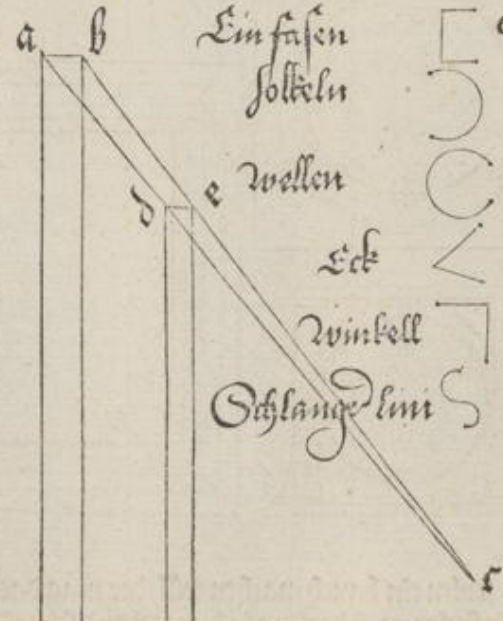 a b
Einfasen
holkeln
d e
Wellen
Eck
Winkell
Schlange lini
c